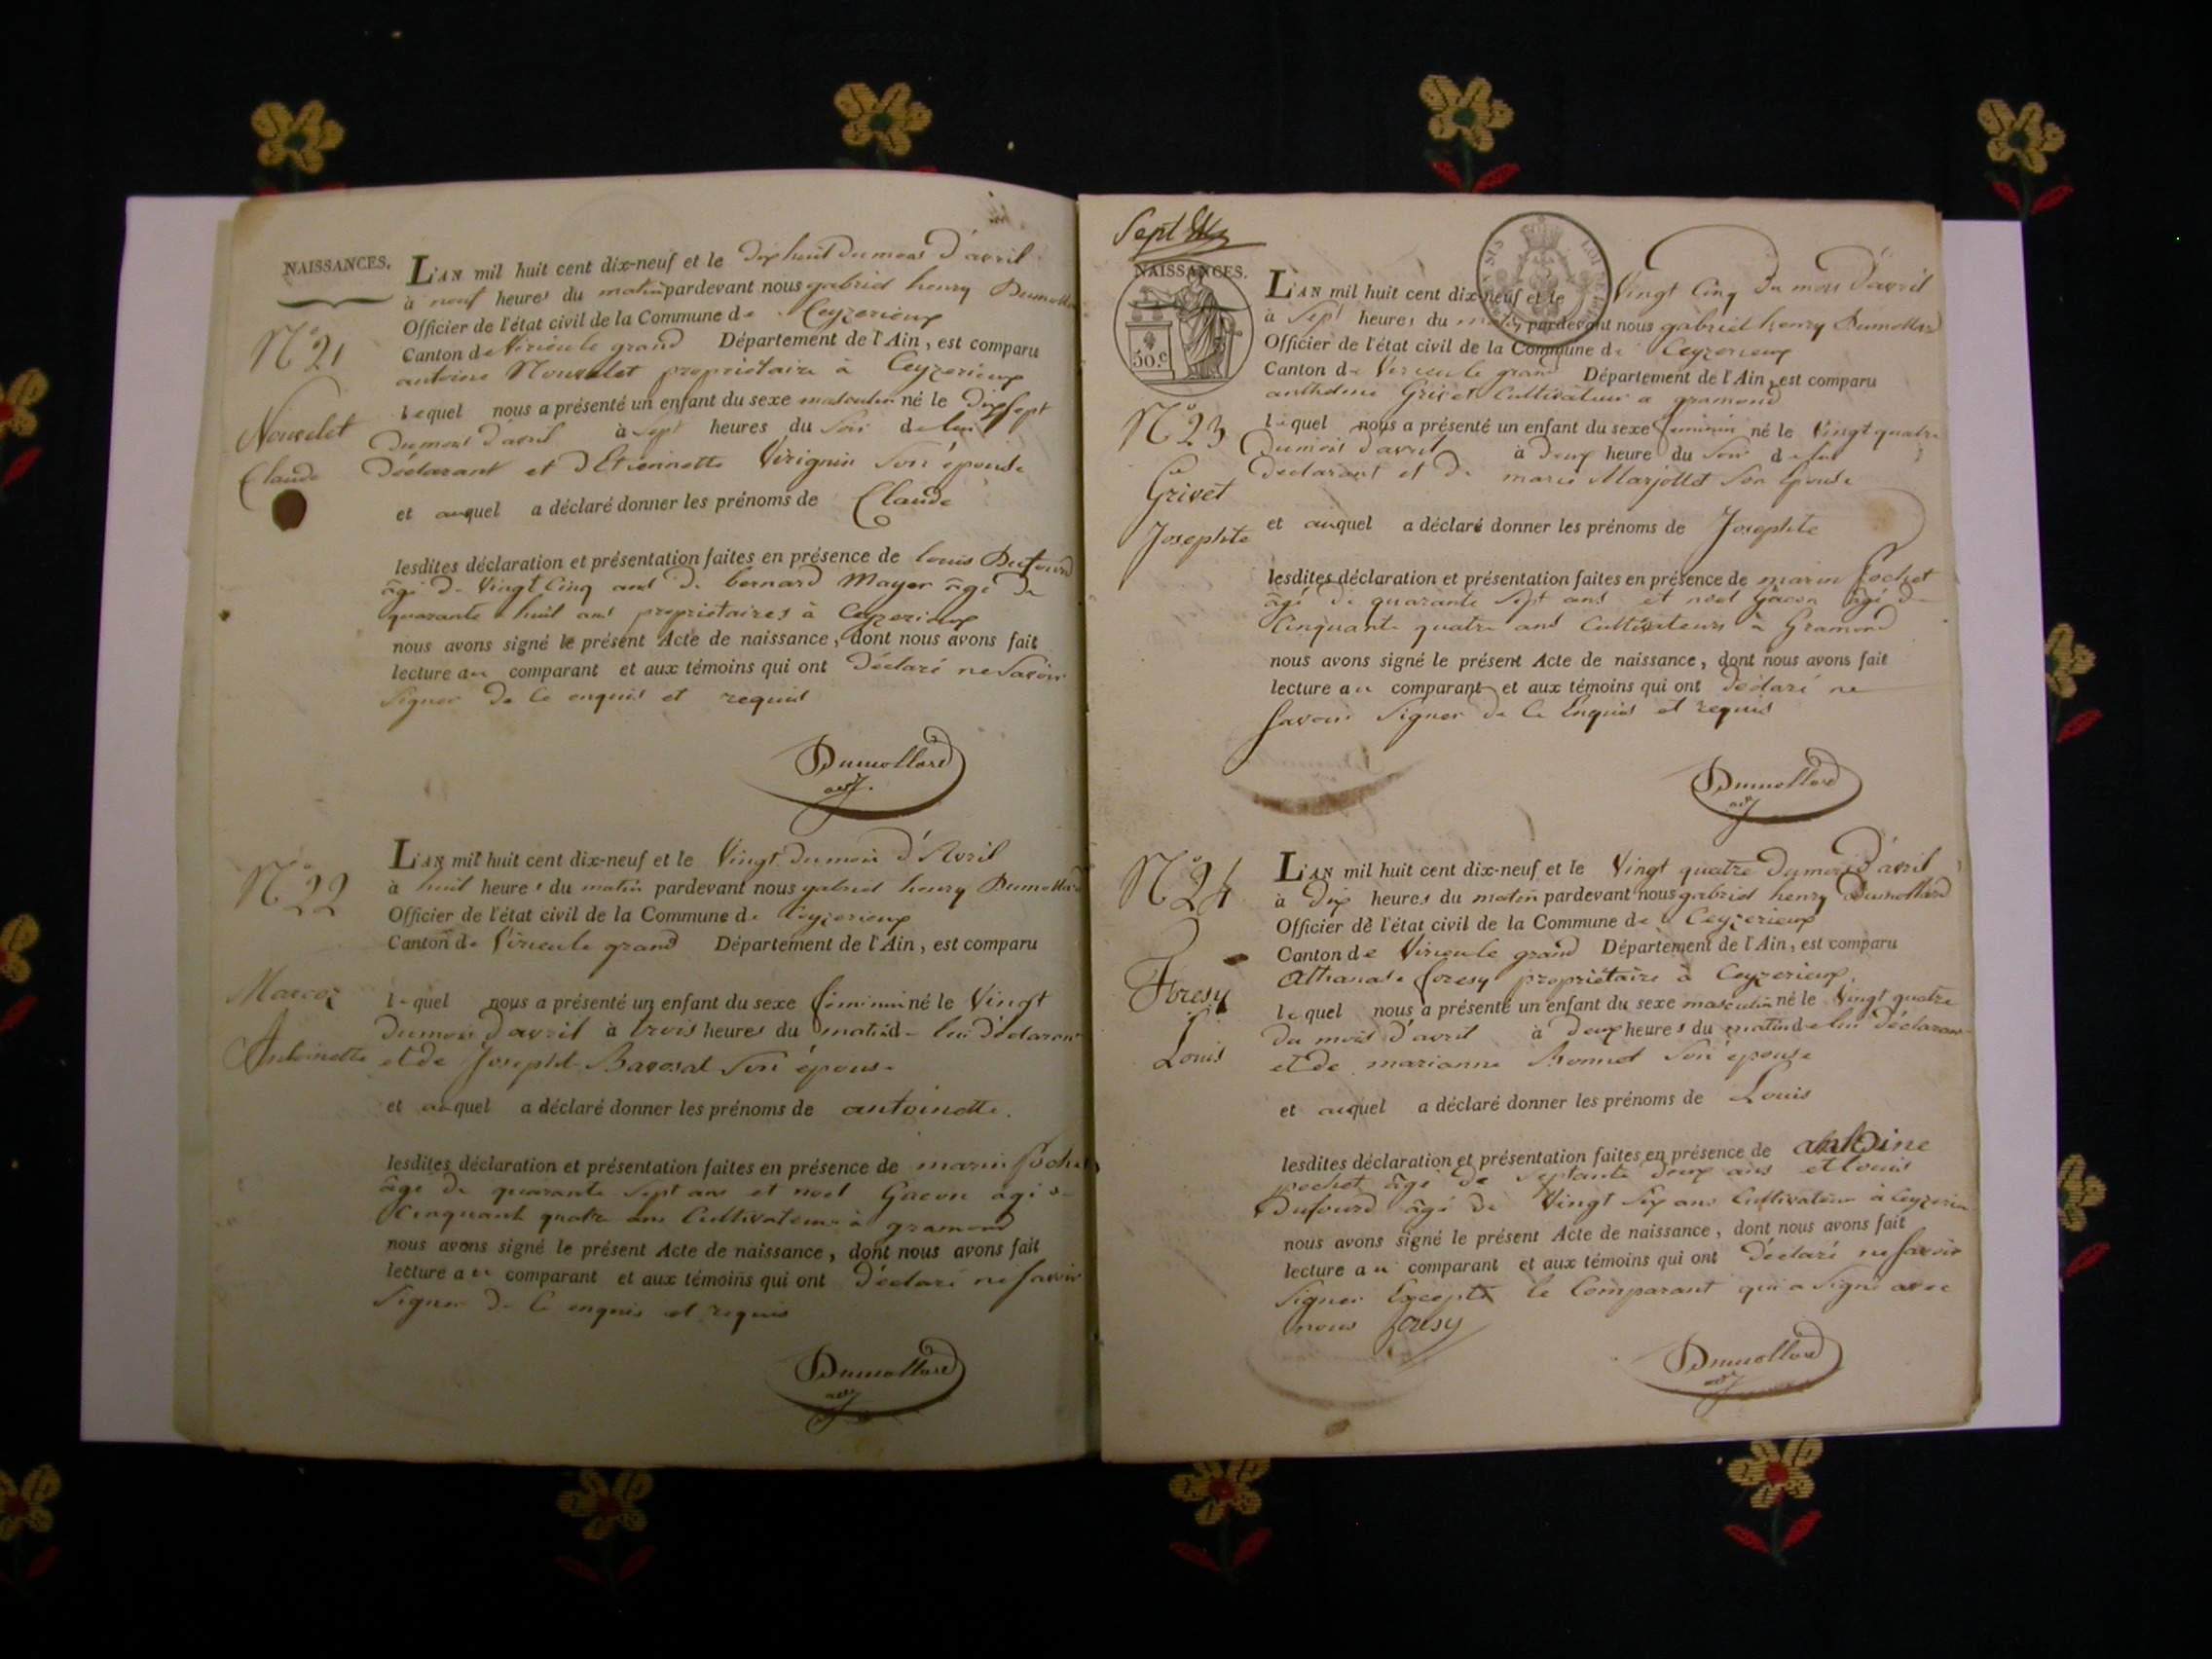 NAISSANCES.
L'AN mil huit cent dix-neuf et le dix huit du mois d'avril
à neuf heures du matin pardevant nous gabriel henry Dumollard
Officier de l'état civil de la Commune de Ceyzerieux
Canton de Virieu le grand Département de l'Ain, est comparu
antoine Nouvelet propriétaire à Ceyzerieux
lequel nous a présenté un enfant du sexe masculin né le dix sept
du mois d'avril à sept heures du soir de lui
déclarant et d'Etiennette Virignin son épouse
et auquel a déclaré donner les prénoms de Claude
lesdites déclaration et présentation faites en présence de louis Dufourd
âgé de vingt cinq ans de bernard Mayer âgé de
quarante huit ans propriétaires à Ceyzerieux
nous avons signé le présent Acte de naissance, dont nous avons fait
lecture au comparant et aux témoins qui ont déclaré ne savoir
signer de ce enquis et requis
Dumollard
adj.
N° 21
Nouvelet
Claude
L'AN mil huit cent dix-neuf et le Vingt du mois d'Avril
à huit heures du matin pardevant nous gabriel henry Dumollard
Officier de l'état civil de la Commune de Ceyzerieux
Canton de Virieu le grand Département de l'Ain, est comparu
lequel nous a présenté un enfant du sexe féminin né le Vingt
du mois d'avril à trois heures du matin de lui déclarant
et de Josephte Bavosat son épouse
et auquel a déclaré donner les prénoms de antoinette.
lesdites déclaration et présentation faites en présence de marin fochet
âgé de quarante sept ans et noel Gacon âgé de
Cinquante quatre ans Cultivateurs à gramond
nous avons signé le présent Acte de naissance, dont nous avons fait
lecture au comparant et aux témoins qui ont déclaré ne savoir
signer de ce enquis et requis
Dumollard
adj
N° 22
Marcoz
Antoinette
Sept
NAISSANCES.
50.c
L'AN mil huit cent dix-neuf et le Vingt Cinq du mois d'avril
à Sept heures du matin pardevant nous gabriel henry Dumollard
Officier de l'état civil de la Commune de Ceyzerieux
Canton de Virieu le grand Département de l'Ain, est comparu
anthelme Grivet Cultivateur a gramond
lequel nous a présenté un enfant du sexe feminin né le Vingt quatre
du mois d'avril à deux heure du soir de lui
déclarant et de marie Marjollet son épouse
et auquel a déclaré donner les prénoms de Josephte
lesdites déclaration et présentation faites en présence de marin fochet
âgé de quarante sept ans et noel Gacon âgé de
Cinquante quatre ans Cultivateurs à Gramond
nous avons signé le présent Acte de naissance, dont nous avons fait
lecture au comparant et aux témoins qui ont déclaré ne
savoir signer de ce Enquis et requis
Dumollard
adj
N° 23
Grivet
Josephte
L'AN mil huit cent dix-neuf et le Vingt quatre du mois d'avril
à dix heures du matin pardevant nous gabriel henry Dumollard
Officier de l'état civil de la Commune de Ceyzerieux
Canton de Virieu le grand Département de l'Ain, est comparu
Athanase foresy propriétaire à Ceyzerieux.
lequel nous a présenté un enfant du sexe masculin né le Vingt quatre
du mois d'avril à deux heures du matin de lui déclarant
et de marianne Bonnet son épouse
et auquel a déclaré donner les prénoms de Louis
lesdites déclaration et présentation faites en présence de antoine
pochet âgé de septante deux ans et louis
Dufourd âgé de Vingt six ans Cultivateurs à Ceyzerieux
nous avons signé le présent Acte de naissance, dont nous avons fait
lecture au comparant et aux témoins qui ont déclaré ne savoir
signer Excepté le Comparant qui a signé avec
nous foresy
Dumollard
adj
N° 24
Foresy
Louis